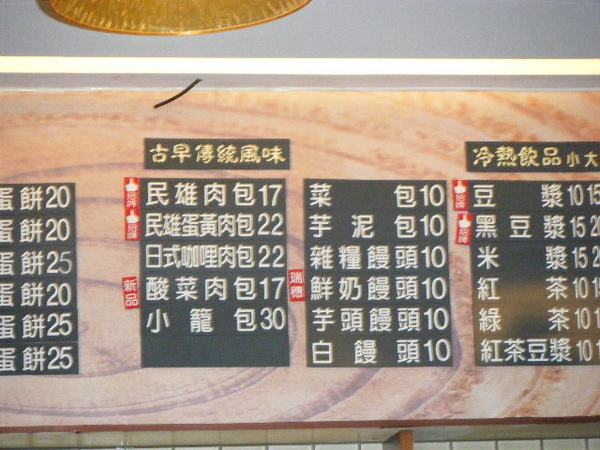 蛋餅20
蛋餅20
蛋餅25
蛋餅20
蛋餅25
蛋餅25
古早傳統風味
招牌 民雄肉包17
招牌 民雄蛋黃肉包22
日式咖哩肉包22
新品 酸菜肉包17
小籠包30
菜包10
芋泥包10
雜糧饅頭10
瑞穗 鮮奶饅頭10
芋頭饅頭10
白饅頭10
冷熱飲品 小 大
招牌 豆漿 10 15
招牌 黑豆漿 15 20
米漿 15 2
紅茶 10 1
綠茶 10 1
紅茶豆漿 10 1